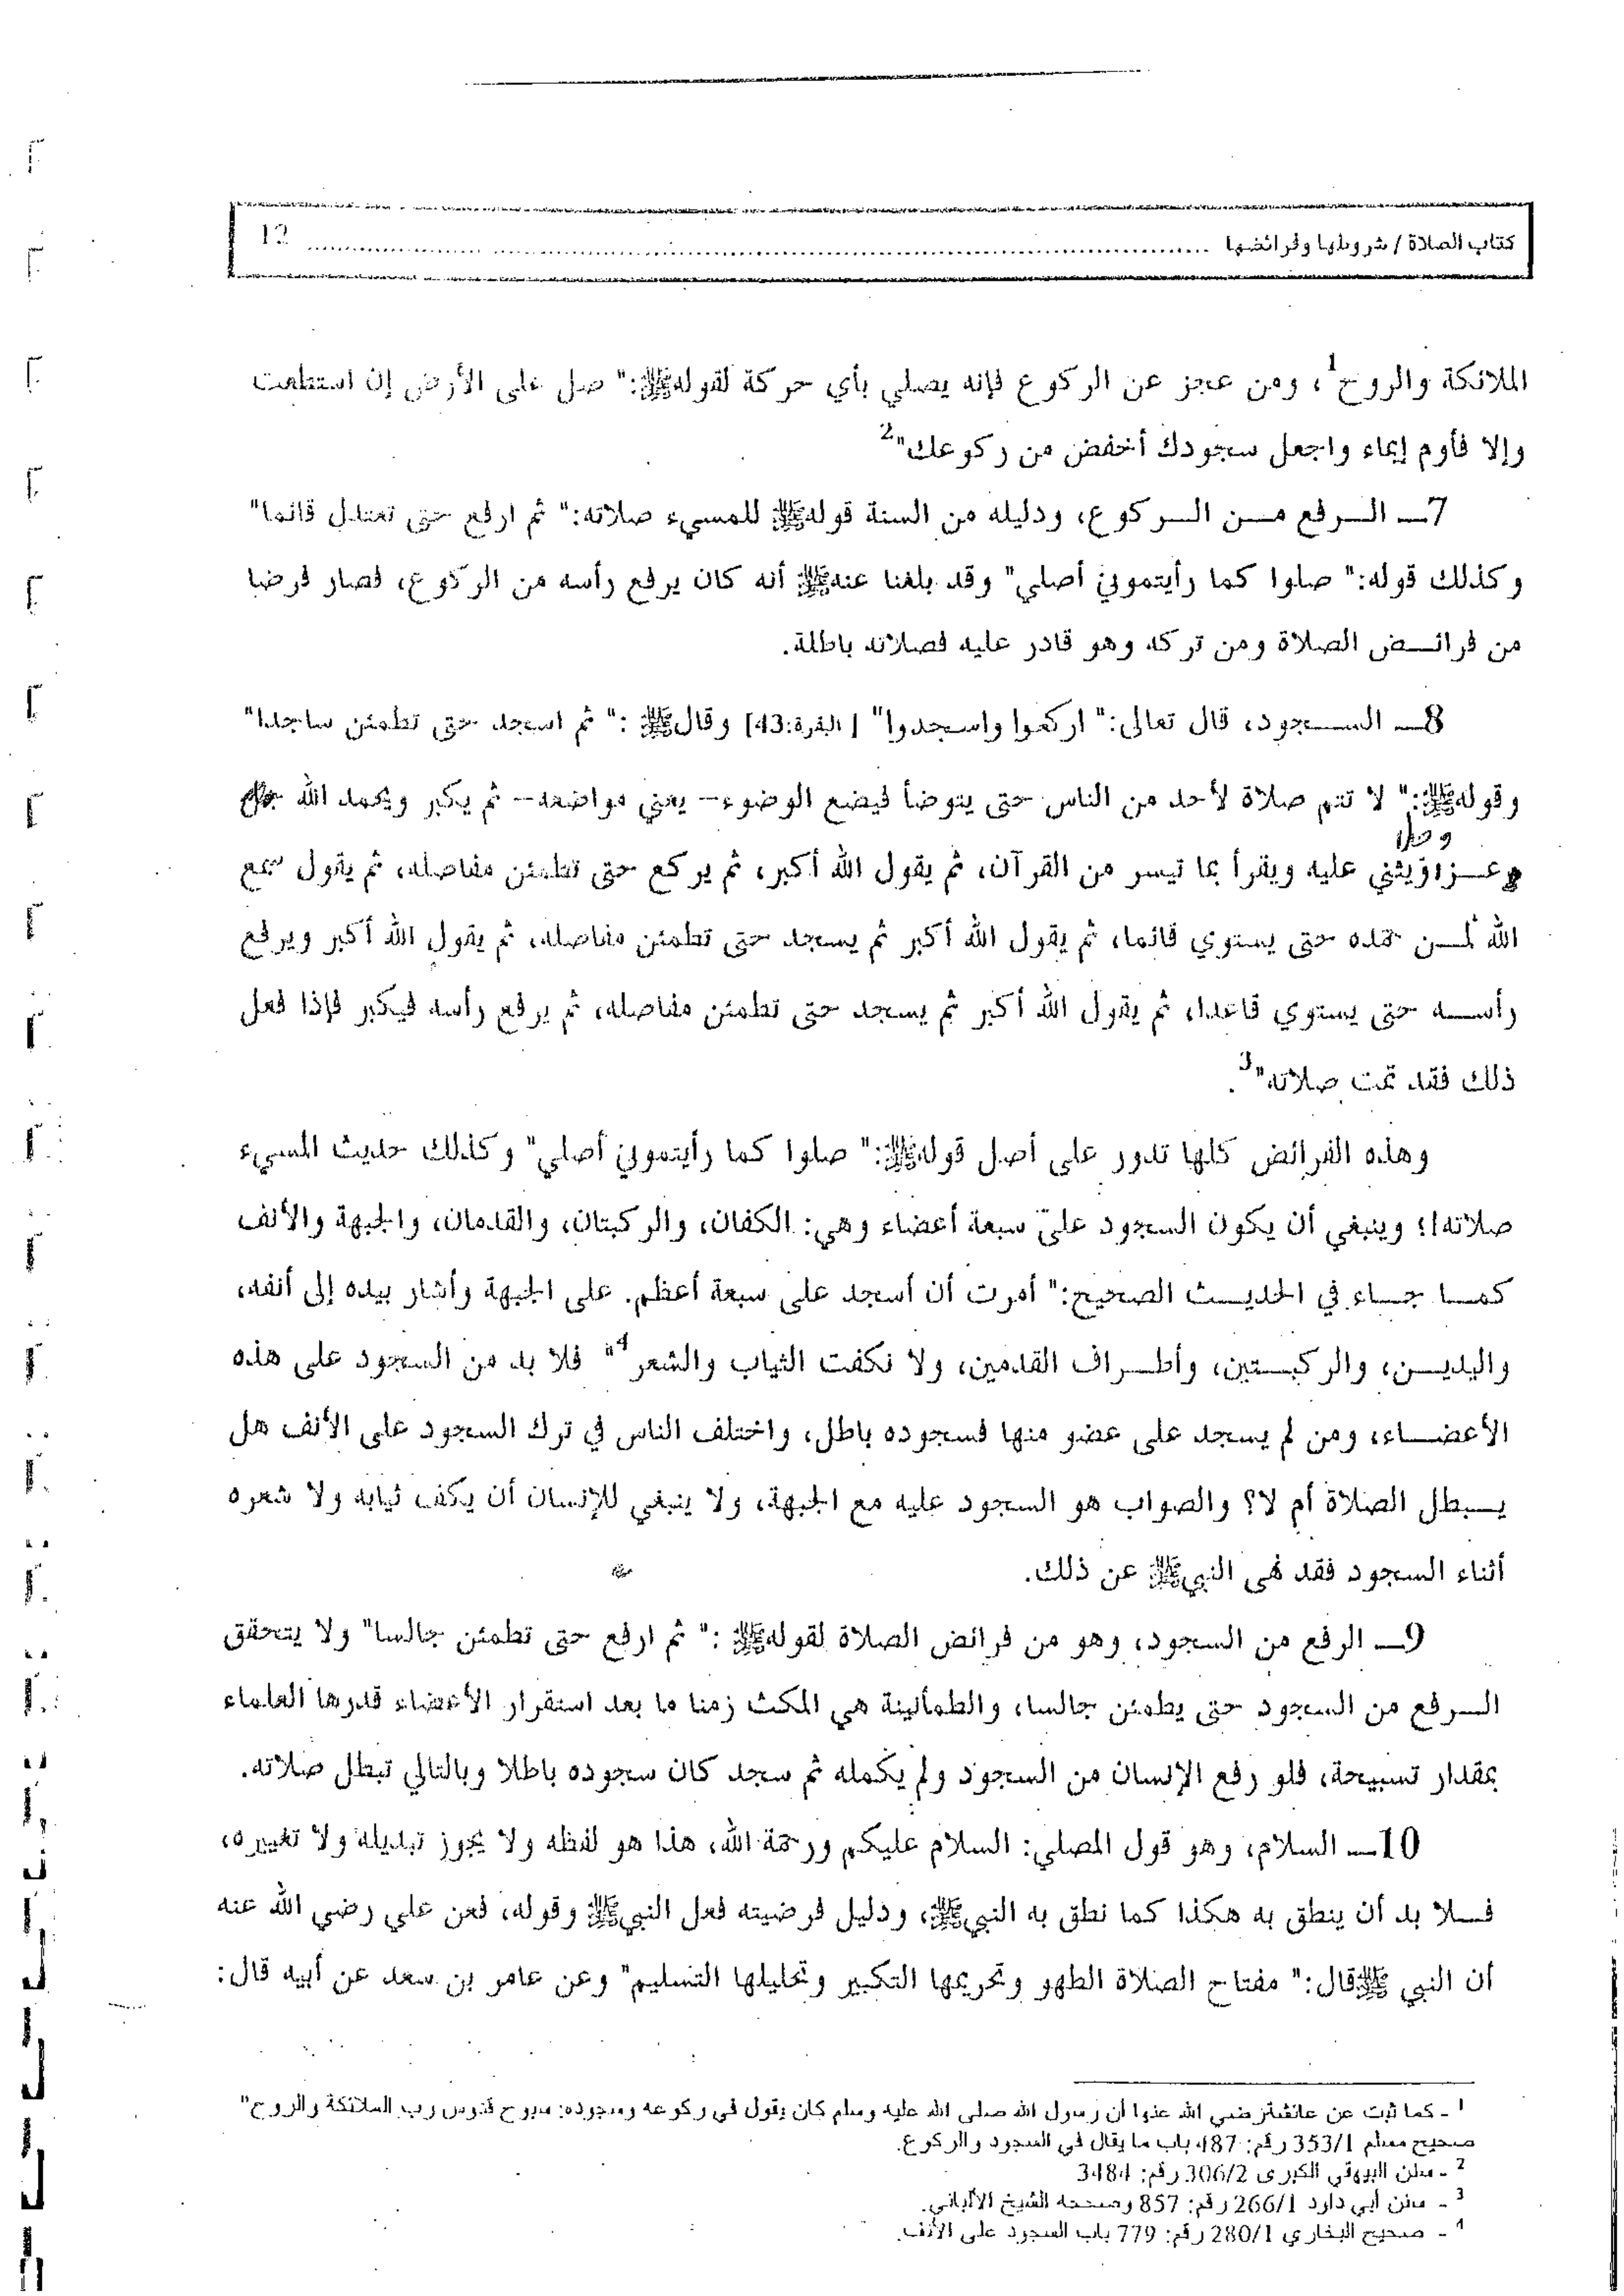 كتاب الصلاة / شروطها وفرائضها ........................ 12
الملائكة والروح1، ومن عجز عن الركوع فإنه يصلي بأي حركة لقولهﷺ:" صل على الأرض إن استطعت
وإلا فأوم إيماء واجعل سجودك أخفض من ركوعك"2
7ـ الرفع من الركوع، ودليله من السنة قولهﷺ للمسيء صلاته:" ثم ارفع حتى تعتدل قائما"
وكذلك قوله:" صلوا كما رأيتموني أصلي" وقد بلغنا عنهﷺ أنه كان يرفع رأسه من الركوع، فصار فرضا
من فرائض الصلاة ومن تركه وهو قادر عليه فصلاته باطلة.
8ـ السجود، قال تعالى:" اركعوا واسجدوا" [البقرة:43] وقالﷺ :" ثم اسجد حتى تطمئن ساجدا"
وقولهﷺ:" لا تتم صلاة لأحد من الناس حتى يتوضأ فيضع الوضوء– يعني مواضعه– ثم يكبر ويحمد الله جل
وجل
وعز ويثني عليه ويقرأ بما تيسر من القرآن، ثم يقول الله أكبر، ثم يركع حتى تطمئن مفاصله، ثم يقول سمع
الله لمن حمده حتى يستوي قائما، ثم يقول الله أكبر ثم يسجد حتى تطمئن مفاصله، ثم يقول الله أكبر ويرفع
رأسه حتى يستوي قاعدا، ثم يقول الله أكبر ثم يسجد حتى تطمئن مفاصله، ثم يرفع رأسه فيكبر فإذا فعل
ذلك فقد تمت صلاته"3.
وهذه الفرائض كلها تدور على أصل قولهﷺ:" صلوا كما رأيتموني أصلي" وكذلك حديث المسيء
صلاته!؛ وينبغي أن يكون السجود على سبعة أعضاء وهي: الكفان، والركبتان، والقدمان، والجبهة والأنف
كما جاء في الحديث الصحيح:" أمرت أن أسجد على سبعة أعظم. على الجبهة وأشار بيده إلى أنفه،
واليدين، والركبتين، وأطراف القدمين، ولا نكفت الثياب والشعر4" فلا بد من السجود على هذه
الأعضاء، ومن لم يسجد على عضو منها فسجوده باطل، واختلف الناس في ترك السجود على الأنف هل
يبطل الصلاة أم لا؟ والصواب هو السجود عليه مع الجبهة، ولا ينبغي للإنسان أن يكف ثيابه ولا شعره
أثناء السجود فقد نهى النبيﷺ عن ذلك.
9ـ الرفع من السجود، وهو من فرائض الصلاة لقولهﷺ :" ثم ارفع حتى تطمئن جالسا" ولا يتحقق
الرفع من السجود حتى يطمئن جالسا، والطمأنينة هي المكث زمنا ما بعد استقرار الأعضاء قدرها العلماء
بمقدار تسبيحة، فلو رفع الإنسان من السجود ولم يكمله ثم سجد كان سجوده باطلا وبالتالي تبطل صلاته.
10ـ السلام، وهو قول المصلي: السلام عليكم ورحمة الله، هذا هو لفظه ولا يجوز تبديله ولا تغييره،
فلا بد أن ينطق به هكذا كما نطق به النبيﷺ، ودليل فرضيته فعل النبيﷺ وقوله، فعن علي رضي الله عنه
أن النبي ﷺقال:" مفتاح الصلاة الطهو وتحريمها التكبير وتحليلها التسليم" وعن عامر بن سعد عن أبيه قال:
1 ـ كما ثبت عن عائشة رضي الله عنها أن رسول الله صلى الله عليه وسلم كان يقول في ركوعه وسجوده: سبوح قدوس رب الملائكة والروح"
صحيح مسلم 353/1 رقم: 487 باب ما يقال في السجود والركوع.
2 ـ سنن البيهقي الكبرى 306/2 رقم: 3484
3 ـ سنن أبي داود 266/1 رقم: 857 وصححه الشيخ الألباني.
4 ـ صحيح البخاري 280/1 رقم: 779 باب السجود على الأنف.